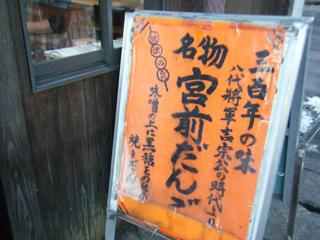 三百年の味
八代将軍吉宗公の時代より
名物
宮前だんご
味噌の上に黒
焼き